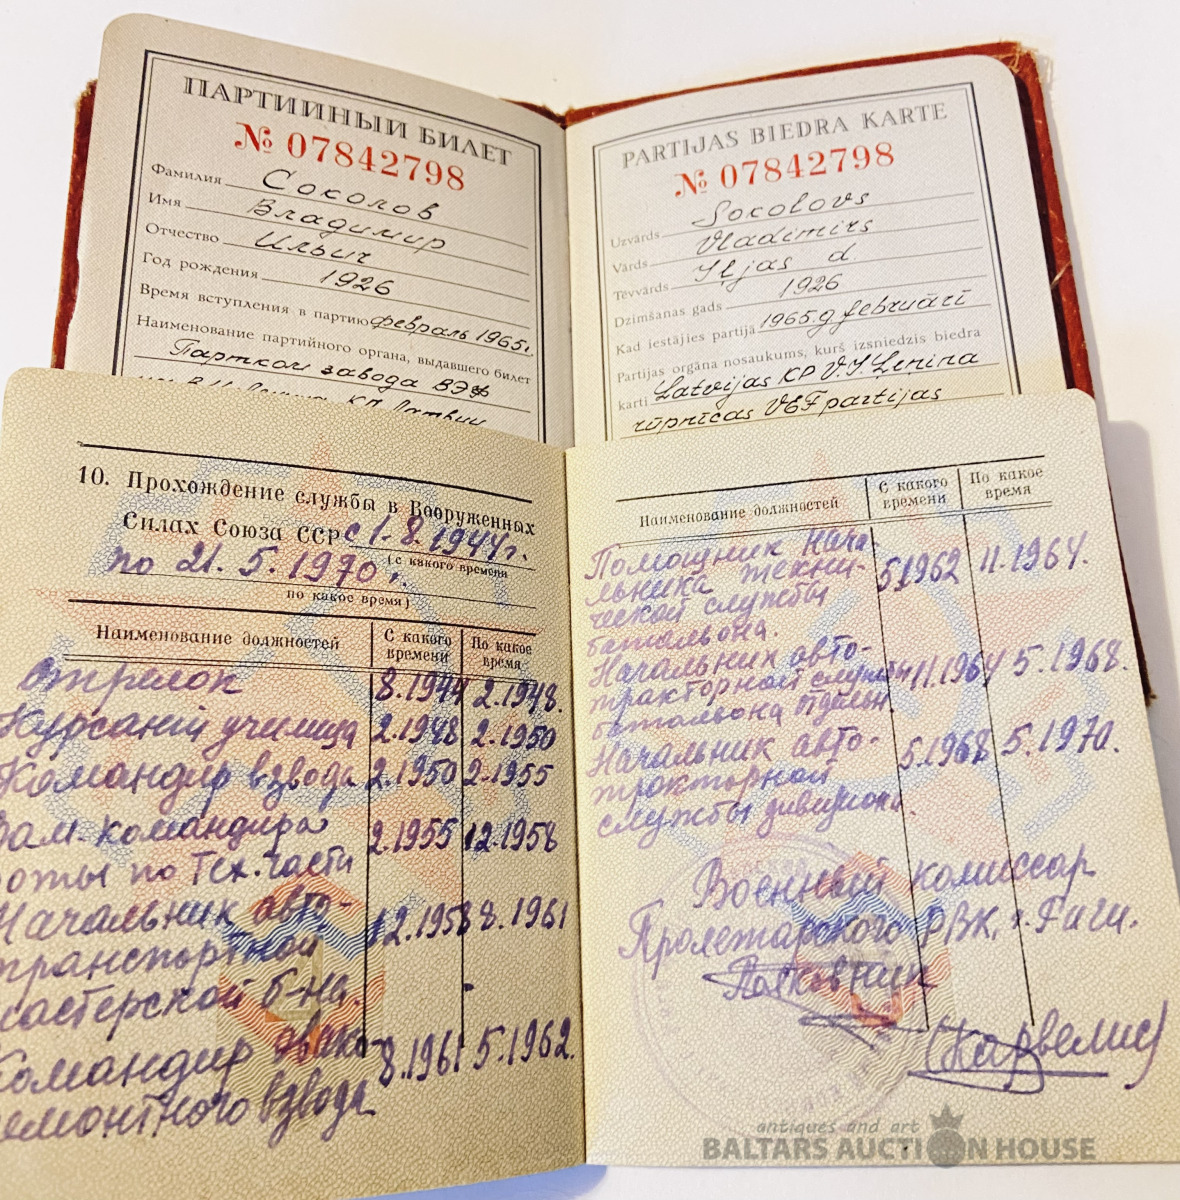 ПАРТИЙНЫЙ БИЛЕТ
№ 07842798
Фамилия Соколов
Имя Владимир
Отчество Ильич
Год рождения 1926
Время вступления в партию февраль 1965г.
Наименование партийного органа, выдавшего билет
Партком завода ВЭФ
КП Латвии
PARTIJAS BIEDRA KARTE
№ 07842798
Uzvārds Sokolovs
Vārds Vladimirs
Tēvvārds Iļjas d.
Dzimšanas gads 1926
Kad iestājies partijā 1965.g februārī
Partijas orgāna nosaukums, kurš izsniedzis biedra
karti Latvijas KP V.I.Ļeņina
rūpnīcas VEF partijas
10. Прохождение службы в Вооруженных
Силах Союза ССР с 1.8.1944г.
(с какого времени
по 21.5.1970 г.
по какое время)
Наименование должностей
С какого времени
По какое время
Стрелок 8.1944 2.1948.
Курсант училища 2.1948 2.1950
Командир взвода 2.1950 2.1955
Зам. командира 2.1955 12.1958
роты по Тех. части
Начальник авто- 12.1958 8.1961
транспортной
мастерской б-на.
Командир эвако- 8.1961 5.1962.
ремонтного взвода
Наименование должностей
С какого времени
По какое время
Помощник нача-
льника техни- 5.1962 11.1964.
ческой службы
батальона.
Начальник авто-
тракторной службы 11.1964 5.1968.
батальона
Начальник авто- 5.1968 5.1970.
тракторной
службы дивизиона.
Военный комиссар
Пролетарского РВК, г. Риги.
Полковник
(Карвелис)
antiques and art
BALTARS AUCTION HOUSE